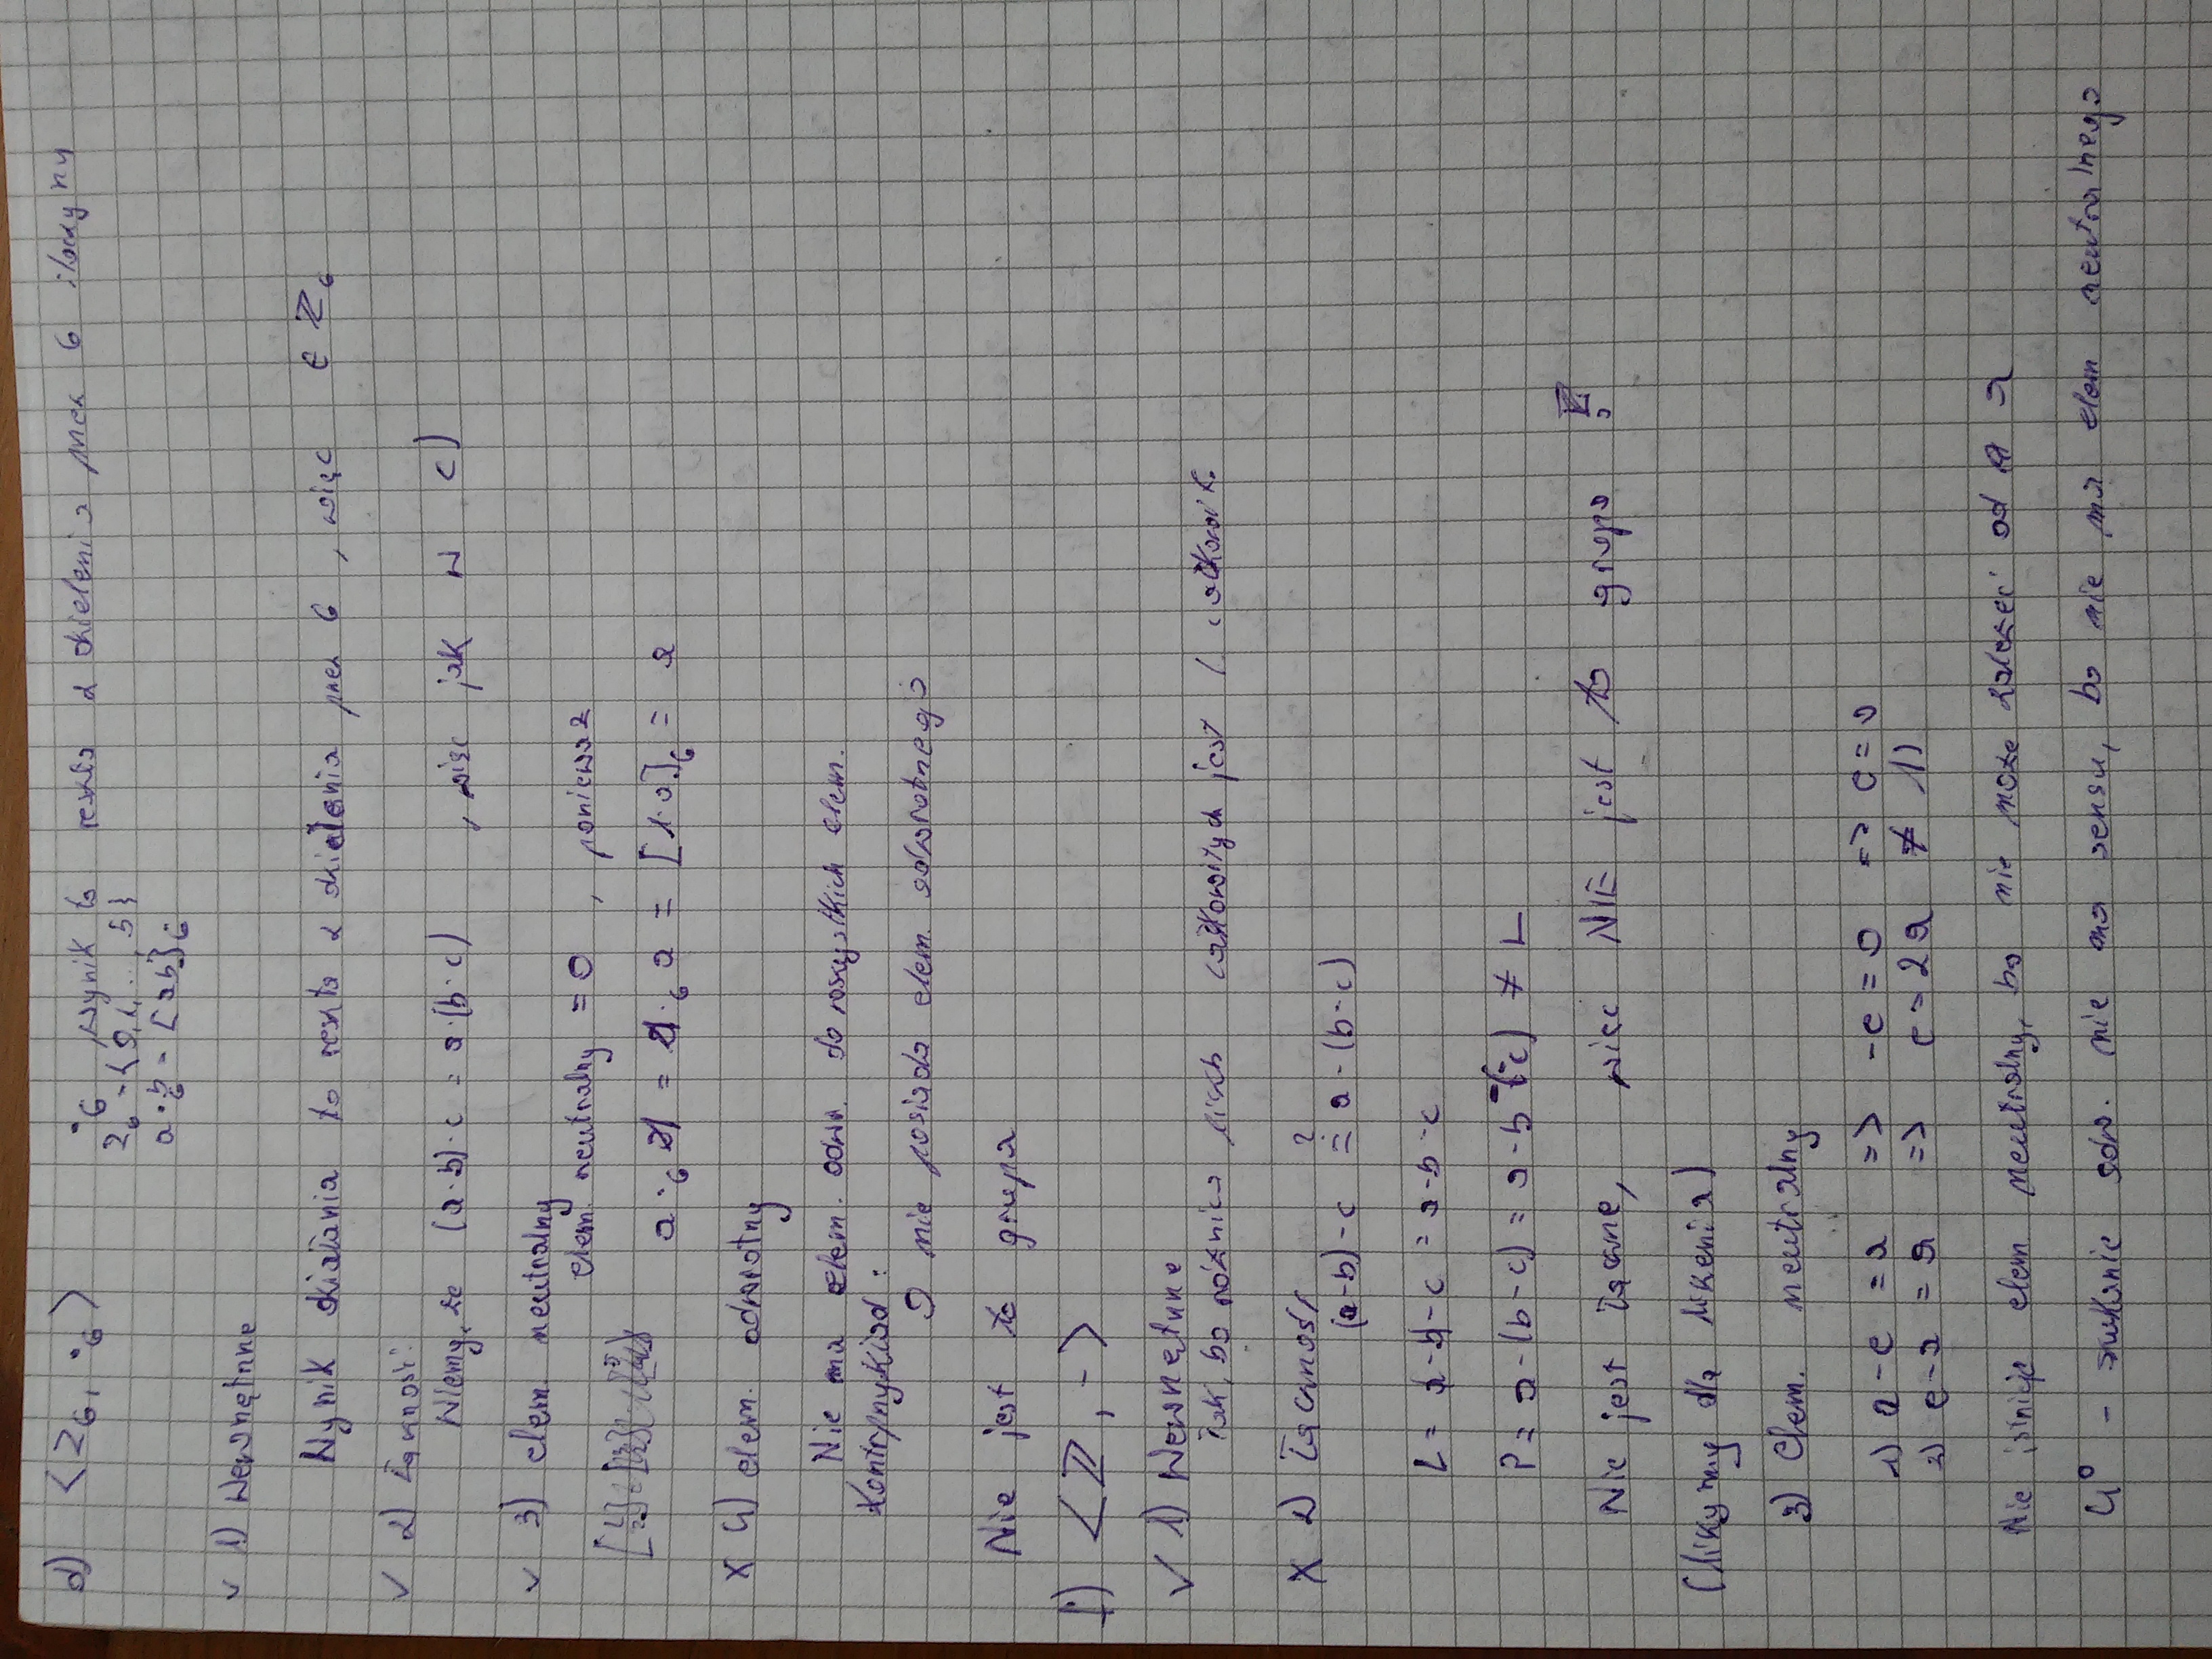 d) <Z₆, ·₆> ·₆ wynik to reszta z dzielenia przez 6 iloczynu
Z₆ = {0, 1, ..., 5}
a ·₆ b = [ab]₆
✓ 1) Wewnętrzne
Wynik działania to reszta z dzielenia przez 6, więc ∈ ℤ₆
✓ 2) Łączność
Wiemy, że (a·b)·c = a·(b·c), więc jak w c)
✓ 3) elem. neutralny
elem. neutralny = 0, ponieważ
a ·₆ 1 = 1 ·₆ a = [1·a]₆ = a
X 4) elem. odwrotny
Nie ma elem. odwr. do wszystkich elem.
Kontrprzykład:
0 nie posiada elem. odwrotnego
Nie jest to grupa
f) <ℤ, ->
✓ 1) Wewnętrzne
Tak, bo różnica liczb całkowitych jest l. całkowit.
X 2) Łączność
(a-b)-c ≟ a-(b-c)
L = a-b-c = a-b-c
P = a-(b-c) = a-b-(-c) ≠ L
Nie jest łączne, więc NIE jest to grupa
(liczymy dla liczenia)
3) Elem. neutralny
1) a-e = a => -e = 0 => e = 0
2) e-a = a => e = 2a ≠ 1)
Nie istnieje elem neutralny, bo nie może zależeć od a
4° - szukanie odw. nie ma sensu, bo nie ma elem neutralnego